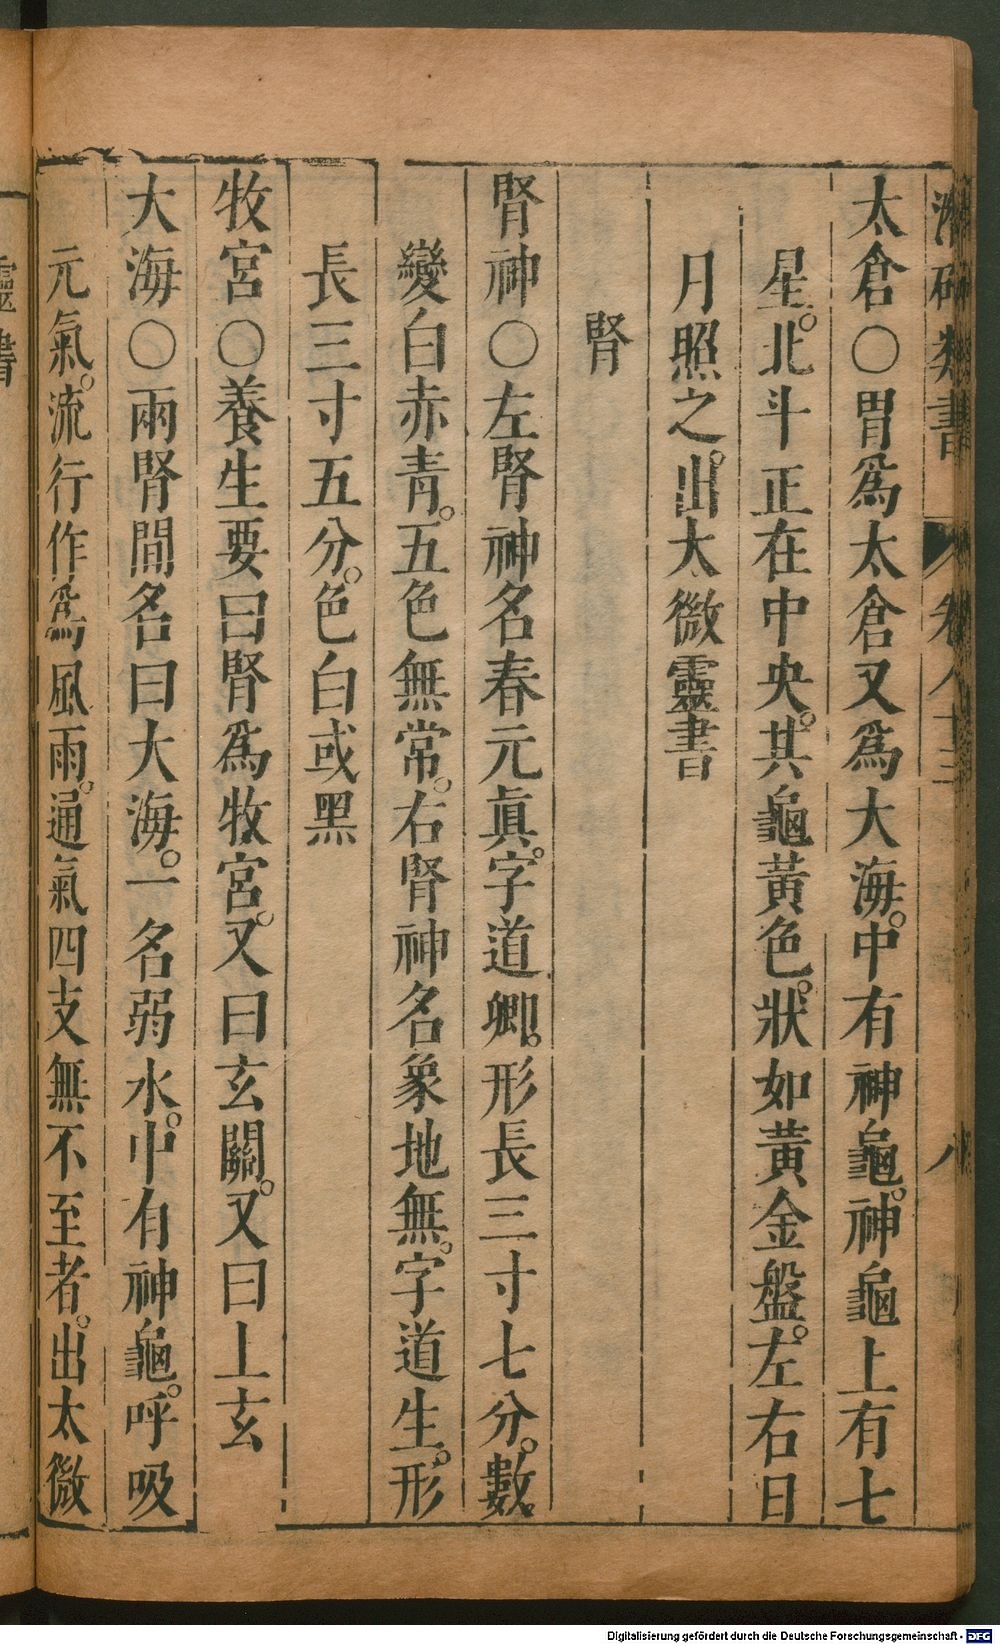 潛確類書 卷八十三 八
太倉○胃爲太倉又爲大海。中有神龜。神龜上有七
星。北斗正在中央。其龜黃色。狀如黃金盤。左右日
月照之。出太微靈書
腎
腎神○左腎神名春元眞。字道卿。形長三寸七分。數
變白赤青。五色無常。右腎神名象地無。字道生。形
長三寸五分。色白或黑
牧宮○養生要曰腎爲牧宮。又曰玄關。又曰上玄
大海○兩腎間名曰大海。一名弱水。中有神龜。呼吸
元氣。流行作爲風雨。通氣四支無不至者。出太微
靈書
Digitalisierung gefördert durch die Deutsche Forschungsgemeinschaft - DFG